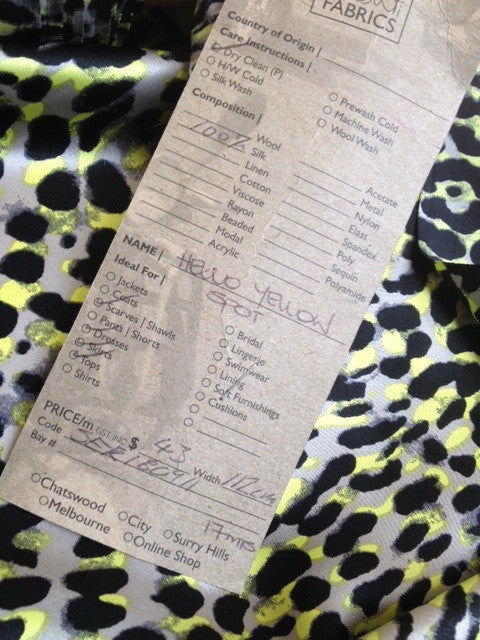 FABRICS
Country of Origin |
Care Instructions |
Dry Clean (P)
H/W Cold
Silk Wash
Prewash Cold
Machine Wash
Wool Wash
Composition |
Wool
100% Silk
Linen
Cotton
Viscose
Rayon
Beaded
Modal
Acrylic
Acetate
Metal
Nylon
Elast
Spandex
Poly
Sequin
Polyamide
NAME | HELLO YELLOW
SPOT
Ideal For |
Jackets
Coats
Scarves | Shawls
Pants | Shorts
Dresses
Skirts
Tops
Shirts
Bridal
Lingerie
Swimwear
Lining
Soft Furnishings
Cushions
PRICE/m GST INC $ 43
Code Width 112cm
Bay #
17mts
Chatswood
City
Surry Hills
Melbourne
Online Shop